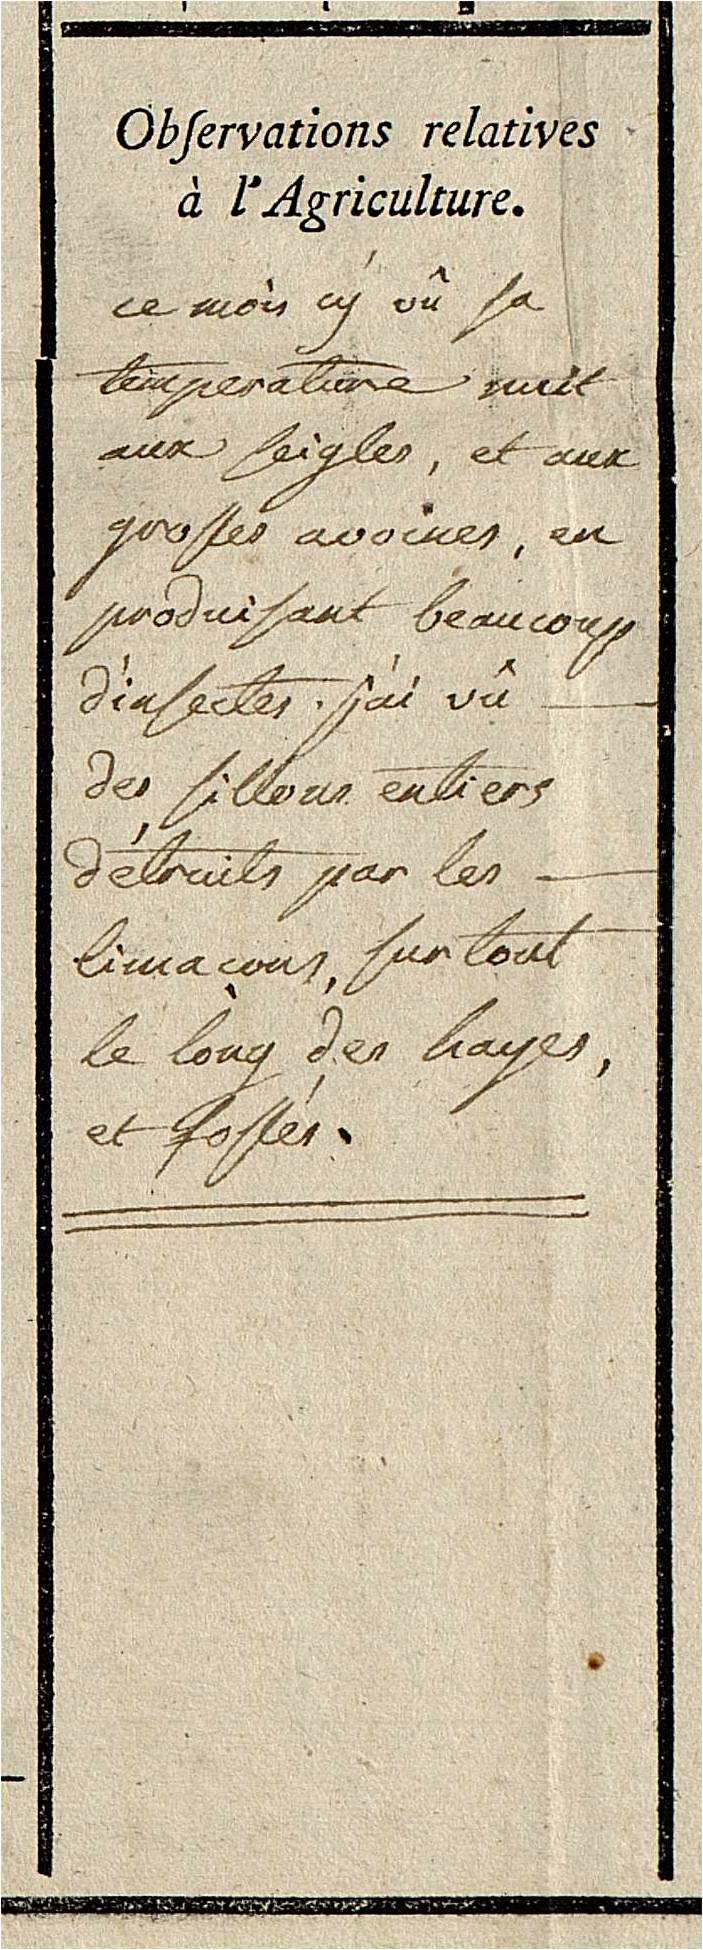 Obſervations relatives
à l'Agriculture.
ce mois cy vû sa
temperature nuit
aux seigles, et aux
grosses avoines, en
produisant beaucoup
d'insectes. j'ai vû
des sillons entiers
détruits par les
limaçons, surtout
le long des hayes,
et fossés.